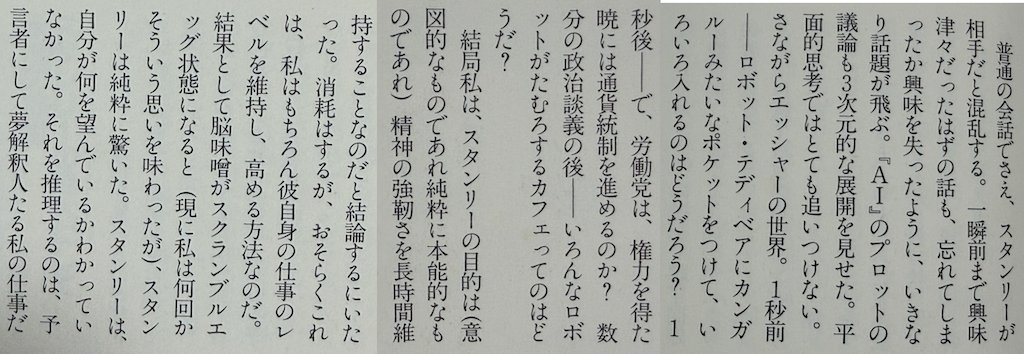 普通の会話でさえ、スタンリーが
相手だと混乱する。一瞬前まで興味
津々だったはずの話も、忘れてしま
ったか興味を失ったように、いきな
り話題が飛ぶ。『AI』のプロットの
議論も3次元的な展開を見せた。平
面的思考ではとても追いつけない。
さながらエッシャーの世界。1秒前
――ロボット・テディベアにカンガ
ルーみたいなポケットをつけて、い
ろいろ入れるのはどうだろう? 1
秒後――で、労働党は、権力を得た
暁には通貨統制を進めるのか? 数
分の政治談義の後――いろんなロボ
ットがたむろするカフェってのはど
うだ?
結局私は、スタンリーの目的は(意
図的なものであれ純粋に本能的なも
のであれ)精神の強靭さを長時間維
持することなのだと結論するにいた
った。消耗はするが、おそらくこれ
は、私はもちろん彼自身の仕事のレ
ベルを維持し、高める方法なのだ。
結果として脳味噌がスクランブルエ
ッグ状態になると(現に私は何回か
そういう思いを味わったが)、スタン
リーは純粋に驚いた。スタンリーは、
自分が何を望んでいるかわかってい
なかった。それを推理するのは、予
言者にして夢解釈人たる私の仕事だ